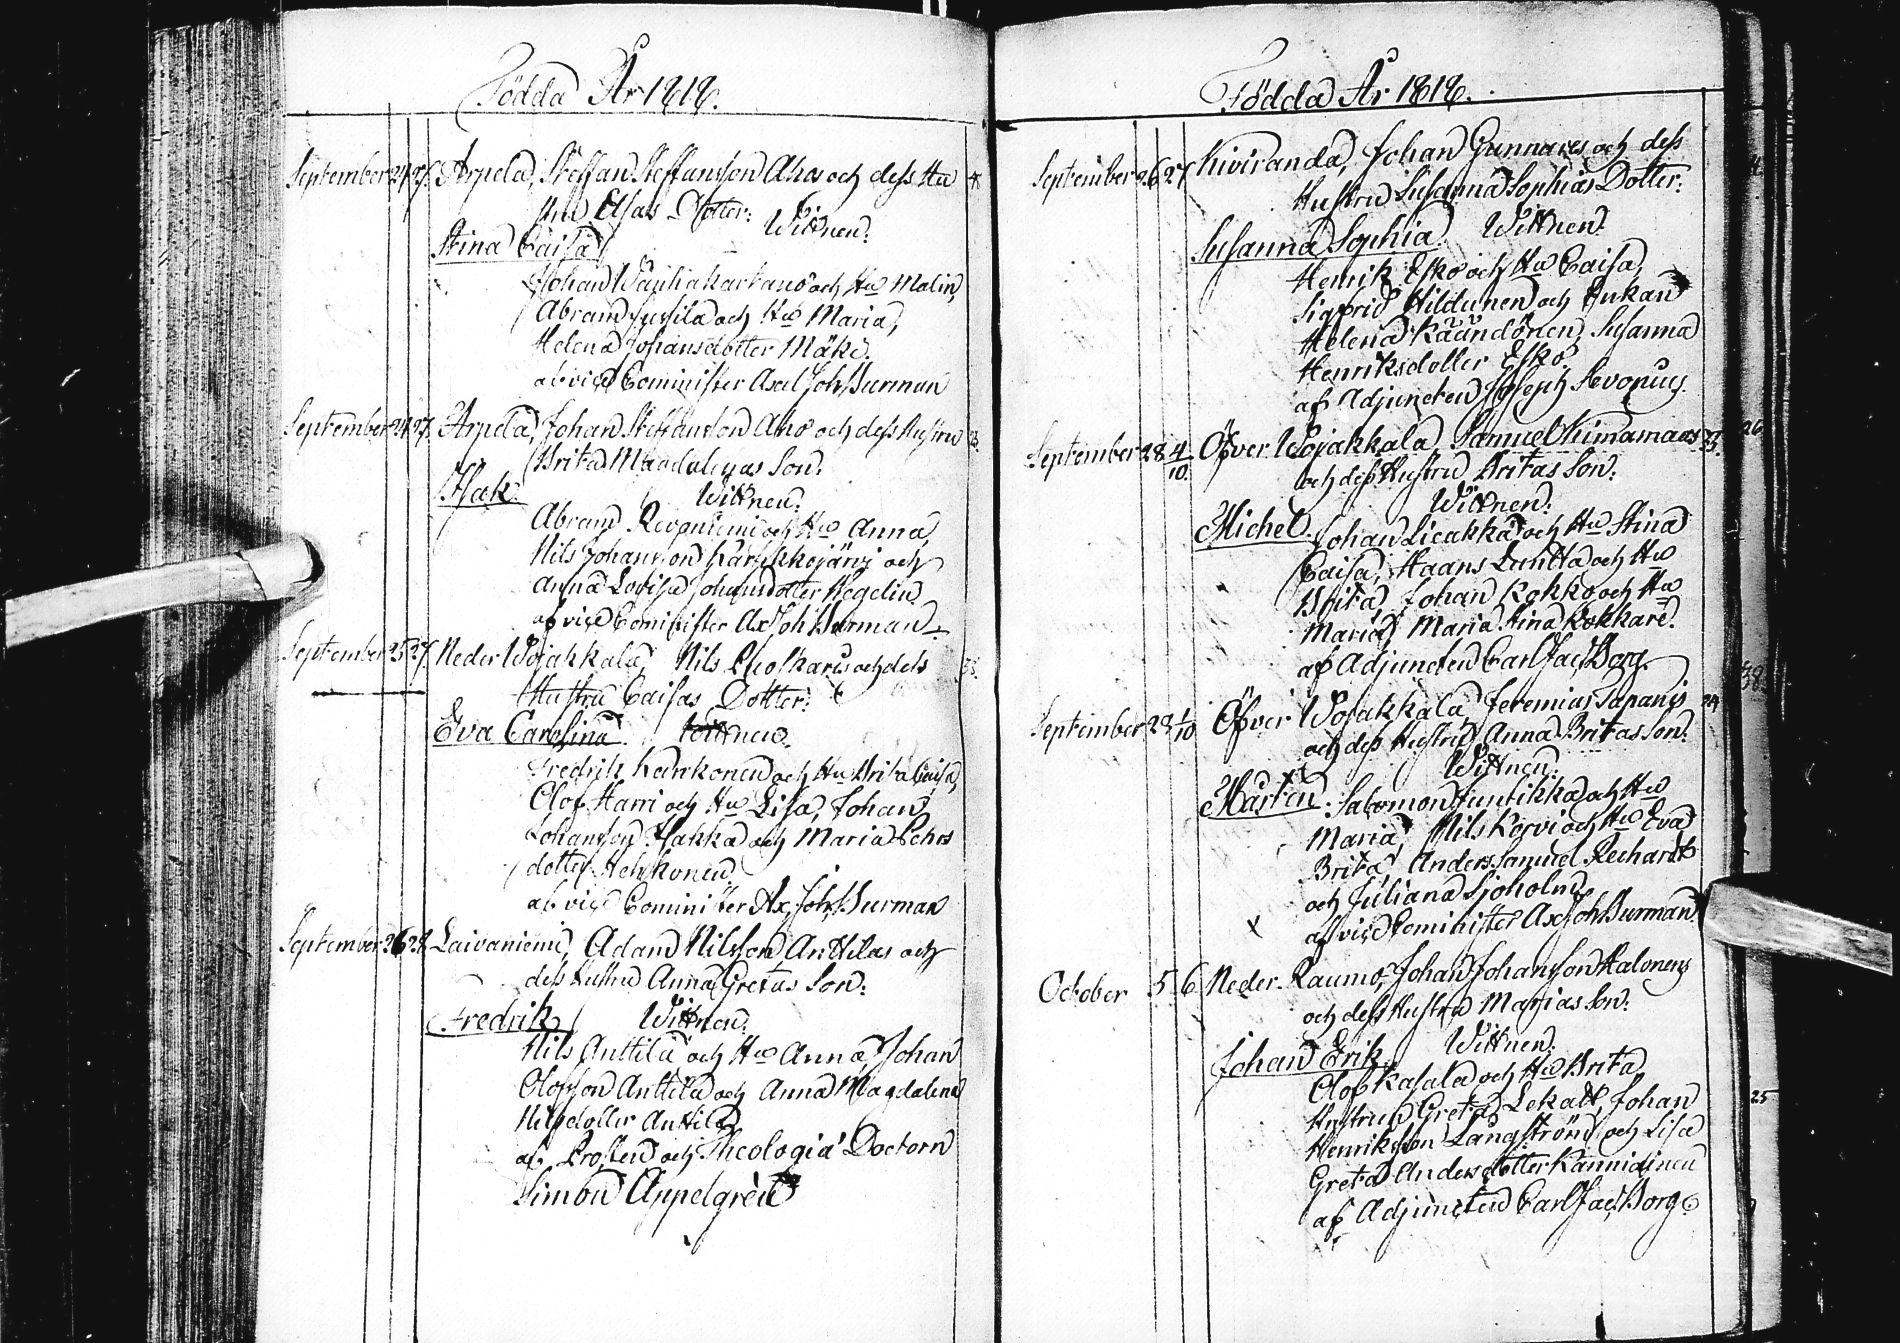 Födda År 1818.
September 24 27. Arpela, Steffan Steffansson Aho och dess Hu
stru Elsas Dotter:
Wittnen:
Stina Caisa
Johan Wainakartano och Hu Malin,
Abram Jusila och Hu Maria,
Helena Johansdotter Mäki.
af vice Cominister Axel Joh Burman
September 24 27. Arpela, Johan Steffansson Aho och dess Hustru
Brita Magdalenas Son:
Isak
Wittnen:
Abram Revoniemi och Hu Anna,
Nils Johansson Karikkojärvi och
Anna Lovisa Johansdotter Hegelin
af vice Cominister Ax Joh Burman
September 25 27. Neder Wojakkala, Nils och dess
Hustru Caisas Dotter:
Eva Carolina Wittnen.
Fredrik Kenkonen och Hu Brita Caisa,
Olof Harri och Hu Lisa, Johan
Johansson Hakka och Maria Pehrs
dotter
af vice Cominister Ax Joh Burman
September 26 28. Laivaniemi, Adam Nilsson Anttilas och
dess Hustru Anna Gretas Son:
Fredrik Wittnen:
Nils Anttila och Hu Anna, Johan
Olofsson Anttila och Anna Magdalena
Nilsdotter Anttila
af Prosten och Theologiæ Doctorn
Simon Appelgren
Födda År 1818.
September 26 27 Kiviranda, Johan Gunnares och dess
Hustru Susanna Sophias Dotter:
Susanna Sophia. Wittnen:
Henrik Esko och Hu Caisa,
Sigfrid Hildunen och Enkan
Helena Käändönen, Susanna
Henriksdotter Esko.
af Adjuncten Joseph Sevonius.
September 28 4/10. Öfver Wojakkala Samuel Kimamaas 23.
och dess Hustru Britas Son:
Wittnen:
Michel. Johan Licakka och Hu Stina
Caisa, Haans Luntta och Hu
Brita, Johan Kokko och Hu
Maria, Maria Stina Kokkare.
af Adjuncten Carl Jac Borg.
September 28 1/10 Öfver Wojakkala Jeremias Tapanis 24
och dess Hustru Anna Britas Son:
Wittnen:
Mårten. Salomon Juntikka och Hu
Maria, Nils Korvi och Hu Eva
Brita, Anders Samuel Rechardt
och Juliana Sjoholm
af vice Cominister Ax Joh Burman
October 5 6 Neder Raumo, Johan Johansson Kalonens
och dess Hustru Marias Son:
Wittnen:
Johan Erik
Olof Kasala och Hu Brita,
Hustrun Greta Lekatt, Johan
Henriksson Långström och Lisa
Greta Andersdotter Kannidinen
af Adjuncten Carl Jac Borg